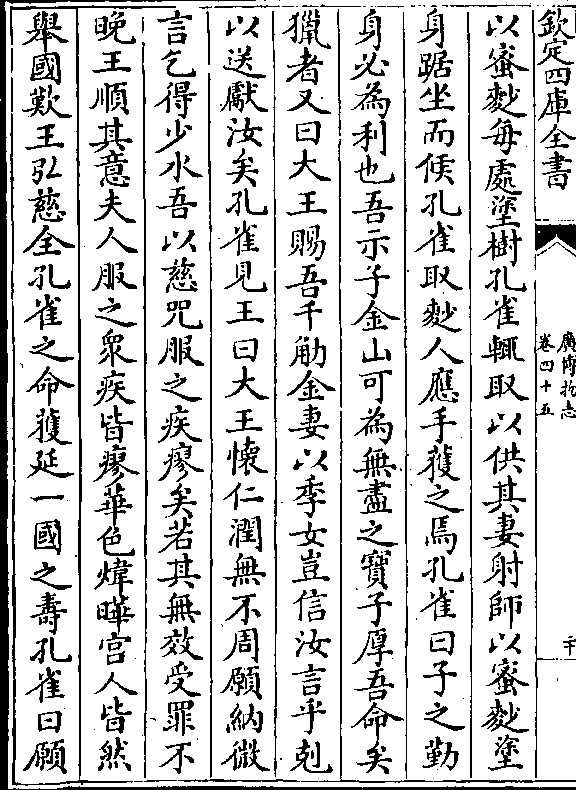 欽定四庫全書
廣博物志
卷四十五
二十
以蜜麨每處塗樹孔雀輒取以供其妻射師以蜜麨塗
身踞坐而候孔雀取麨人應手獲之焉孔雀曰子之勤
身必為利也吾示子金山可為無盡之寶子厚吾命矣
獵者又曰大王賜吾千觔金妻以季女豈信汝言乎剋
以送獻汝矣孔雀見王曰大王懐仁潤無不周願納微
言乞得少水吾以慈咒服之疾瘳矣若其無效受罪不
晚王順其意夫人服之衆疾皆瘳華色煒曄宫人皆然
舉國歎王弘慈全孔雀之命獲延一國之壽孔雀曰願